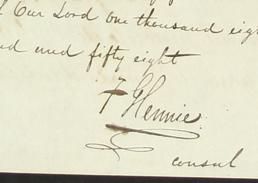 Our Lord one thousand eig
and fifty eight
F Hennie
consul